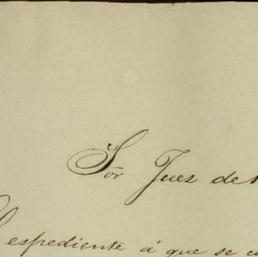 Sor Juez de
espediente á que se